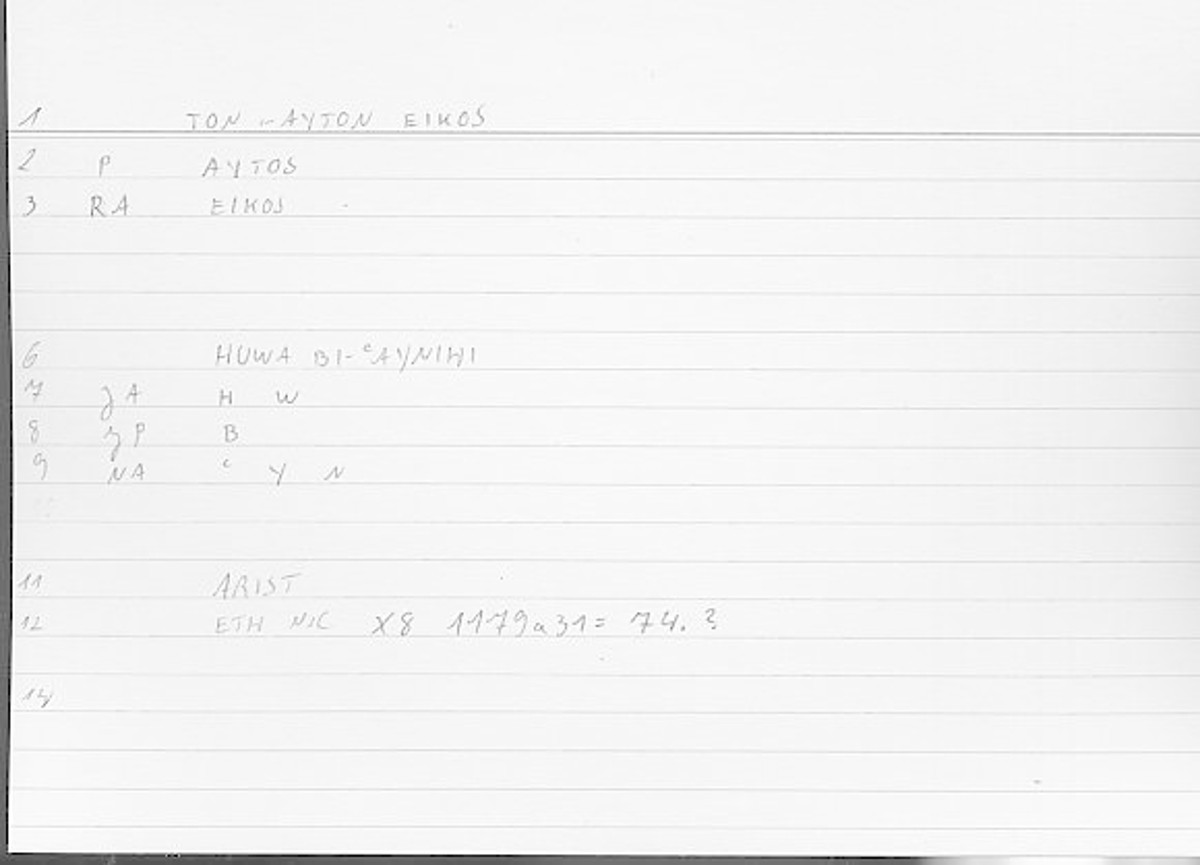 1 TON - AYTON EIKOS
2 P AYTOS
3 RA EIKOS
6 HUWA BI-ʿAYNIHI
7 A H W
8 P B
9 NA ʿ Y N
11 ARIST
12 ETH NIC X8 1179a31= 74. ?
14